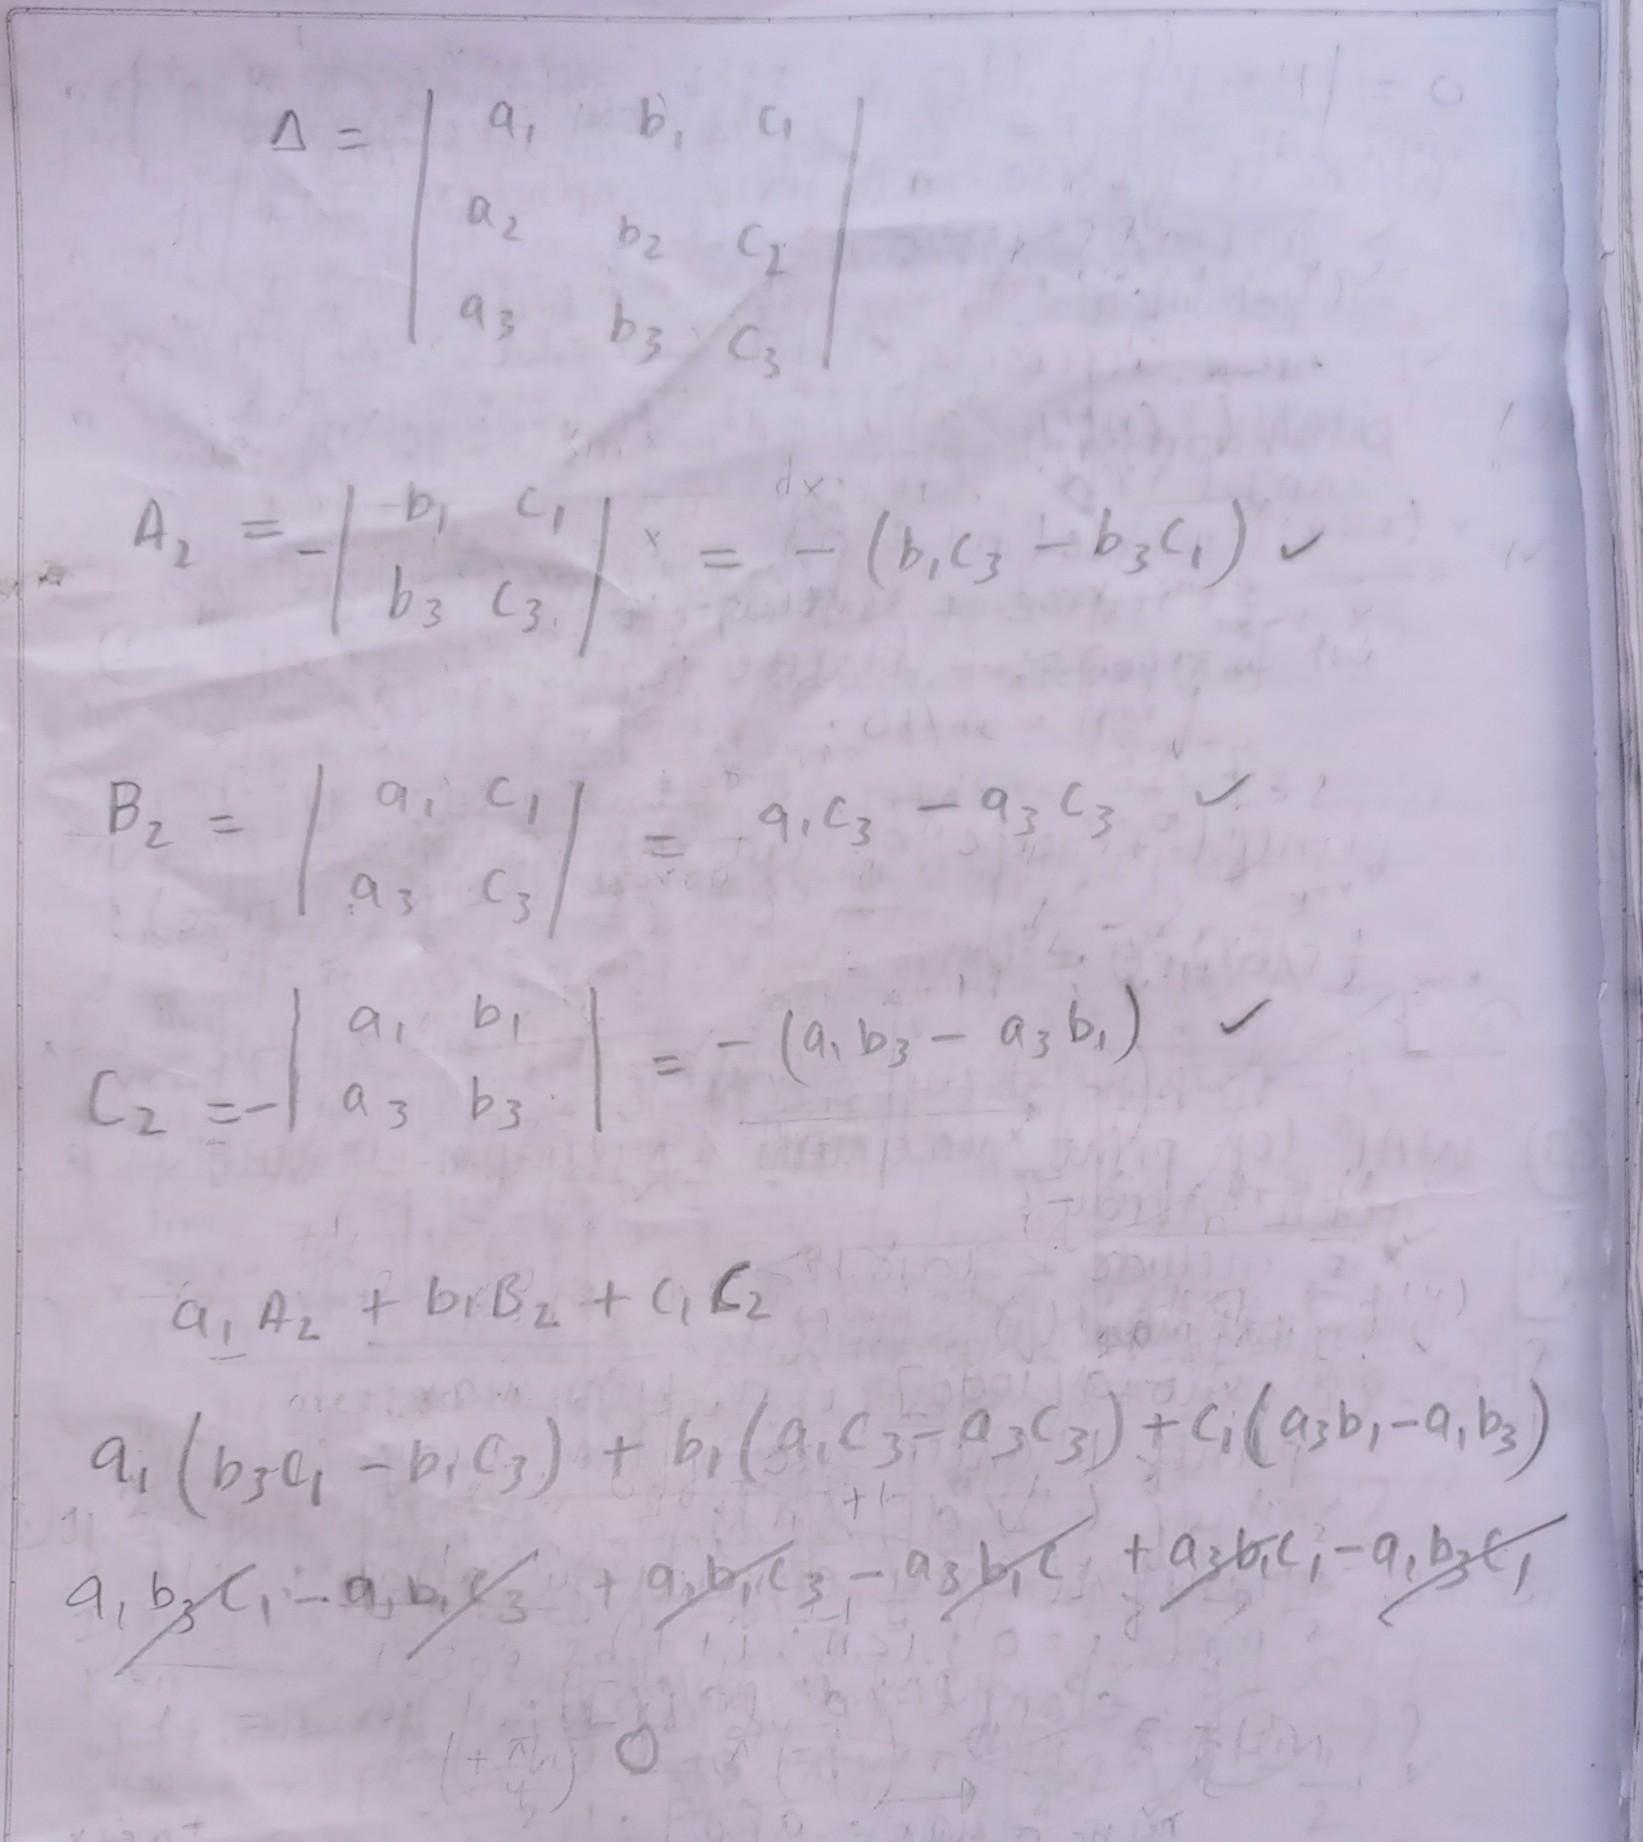 Δ = | a₁ b₁ c₁ |
| a₂ b₂ c₂ |
| a₃ b₃ c₃ |
A₂ = - | b₁ c₁ | = - (b₁c₃ - b₃c₁) ✓
| b₃ c₃ |
B₂ = | a₁ c₁ | = a₁c₃ - a₃c₃ ✓
| a₃ c₃ |
C₂ = - | a₁ b₁ | = - (a₁b₃ - a₃b₁) ✓
| a₃ b₃ |
a₁A₂ + b₁B₂ + c₁C₂
a₁(b₃c₁ - b₁c₃) + b₁(a₁c₃ - a₃c₃) + c₁(a₃b₁ - a₁b₃)
a₁b₃c₁ - a₁b₁c₃ + a₁b₁c₃ - a₃b₁c + a₃b₁c₁ - a₁b₃c₁
0